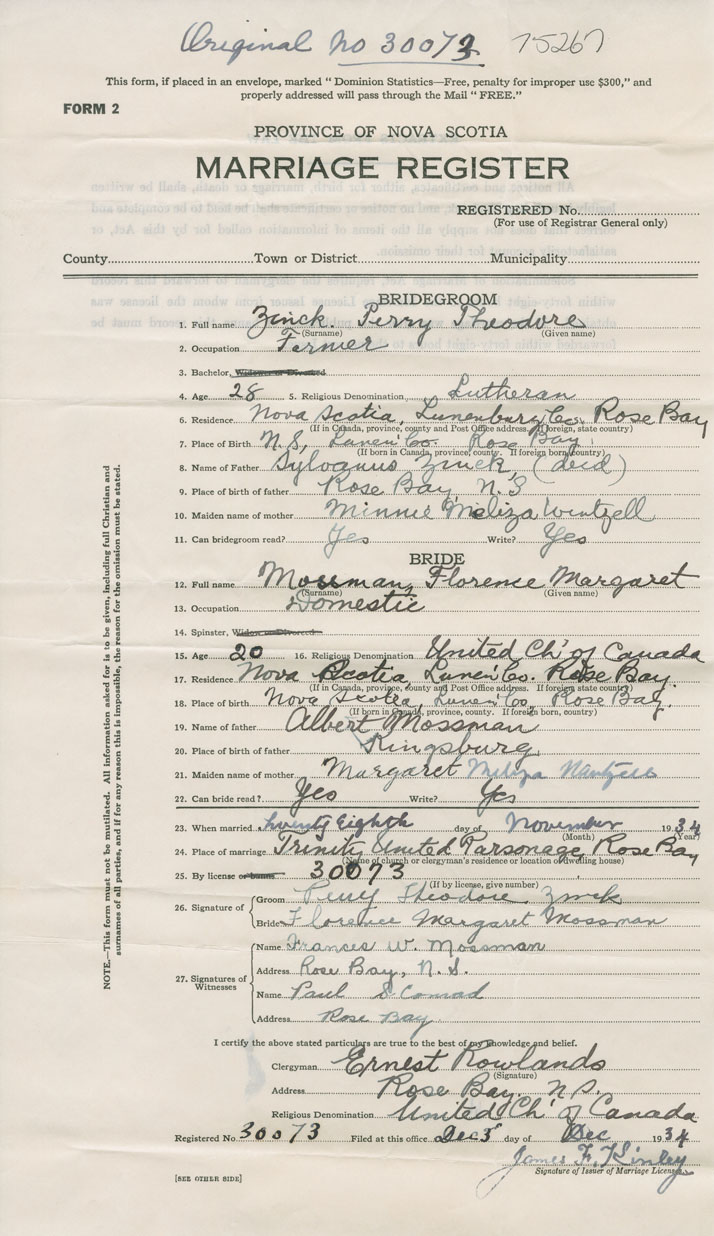 Original No 30073 75267
This form, if placed in an envelope, marked "Dominion Statistics—Free, penalty for improper use $300," and
properly addressed will pass through the Mail "FREE."
FORM 2
PROVINCE OF NOVA SCOTIA
MARRIAGE REGISTER
REGISTERED No.
(For use of Registrar General only)
County Town or District Municipality
BRIDEGROOM
1. Full name Zinck. Perry Theodore
(Surname) (Given name)
2. Occupation Farmer
3. Bachelor, Widower or Divorced
4. Age 28 5. Religious Denomination Lutheran
6. Residence Nova Scotia, Lunenburg Co. Rose Bay
(If in Canada, province, county and Post Office address. If foreign, state country)
7. Place of Birth N.S, Lunen Co. Rose Bay.
(If born in Canada, province, county. If foreign born, country)
8. Name of Father Sylvanus Zinck, (died)
9. Place of birth of father Rose Bay, N.S
10. Maiden name of mother Minnie Meliza Wentzell
11. Can bridegroom read? Yes Write? Yes
BRIDE
12. Full name Mossman, Florence Margaret
(Surname) (Given name)
13. Occupation Domestic
14. Spinster, Widow or Divorced
15. Age 20 16. Religious Denomination United Ch' of Canada
17. Residence Nova Scotia, Lunen Co. Rose Bay.
(If in Canada, province, county and Post Office address. If foreign state country)
18. Place of birth Nova Scotia, Lunen Co, Rose Bay.
(If born in Canada, province, county. If foreign born, country)
19. Name of father Albert Mossman
20. Place of birth of father Kingsburg
21. Maiden name of mother Margaret
22. Can bride read? Yes Write? Yes
23. When married twenty Eighth day of November 1934
(Month) (Year)
24. Place of marriage Trinity United Parsonage, Rose Bay
(Name of church or clergyman's residence or location of dwelling house)
25. By license or banns 30073
(If by license, give number)
26. Signature of
Groom Perry Theodore Zinck
Bride Florence Margaret Mossman
27. Signatures of Witnesses
Name Frances W. Mossman
Address Rose Bay, N.S.
Name Paul S Conrad
Address Rose Bay
I certify the above stated particulars are true to the best of my knowledge and belief.
Clergyman Ernest Rowlands
(Signature)
Address Rose Bay. N.S.
Religious Denomination United Ch' of Canada
Registered No. 30073 Filed at this office Dec 3 day of Dec 1934
James F. Kinley
Signature of Issuer of Marriage Licenses
[SEE OTHER SIDE]
NOTE.—This form must not be mutilated. All information asked for is to be given, including full Christian and
surnames of all parties, and if for any reason this is impossible, the reason for the omission must be stated.